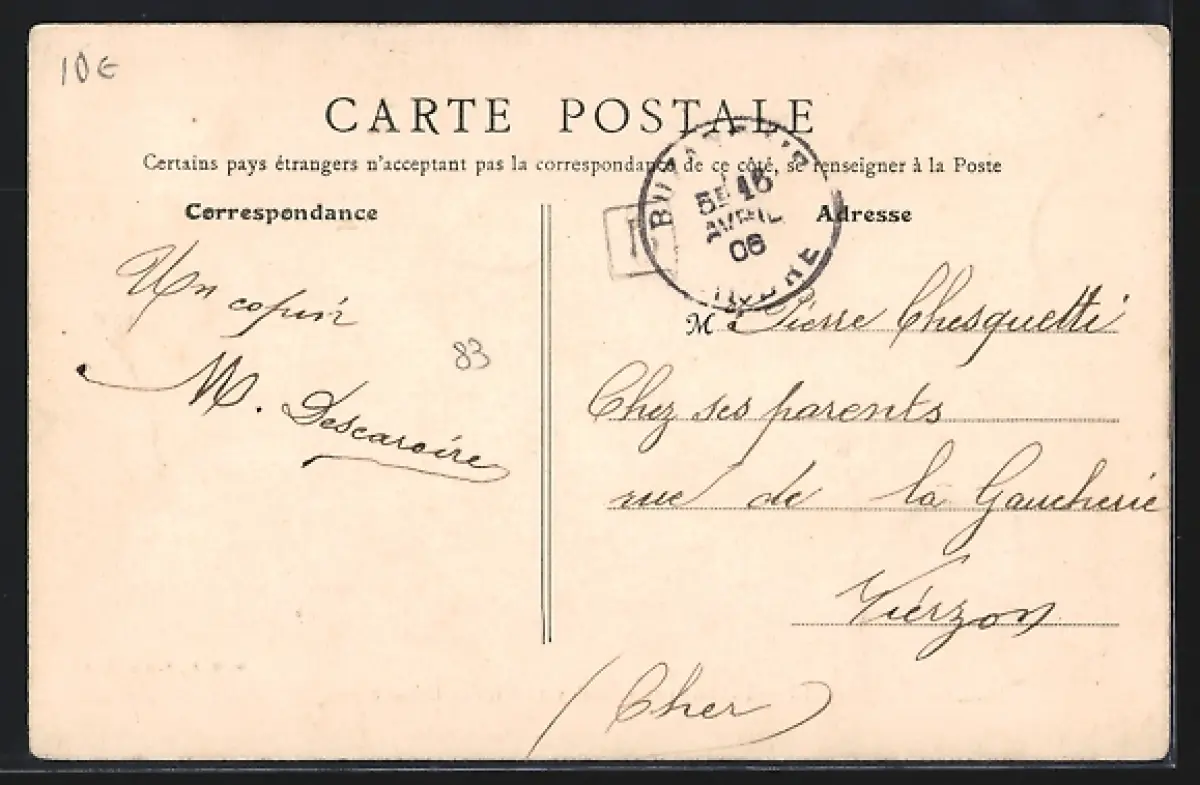 10€
CARTE POSTALE
Certains pays étrangers n'acceptant pas la correspondance de ce côté, se renseigner à la Poste
Correspondance
Adresse
BUZANÇAIS
5E 16
AVRIL
06
INDRE
T
Un copin
83
M. Descaroire
M Pierre Chesquetti
Chez ses parents
rue de la Gaucherie
Vierzon
(Cher)